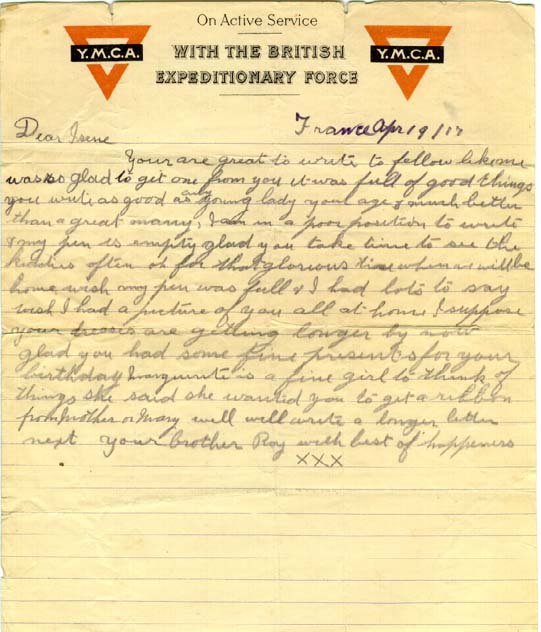 On Active Service
Y.M.C.A.
WITH THE BRITISH
EXPEDITIONARY FORCE
Y.M.C.A.
France Apr 19/17
Dear Irene
Your are great to write to fellow like me
was so glad to get one from you it was full of good things
you write as good as any young lady your age & much better
than a great many, I am in a poor position to write
& my pen is empty glad you take time to see the
kiddies often oh for that glorious time when we will be
home wish my pen was full & I had lots to say
wish I had a picture of you all at home I suppose
your dresses are getting longer by now
glad you had some fine presents for your
birthday Marguerite is a fine girl to think of
things she said she wanted you to get a ribbon
from Mother or Mary well will write a longer letter
next your brother Roy with best of happeners
XXX